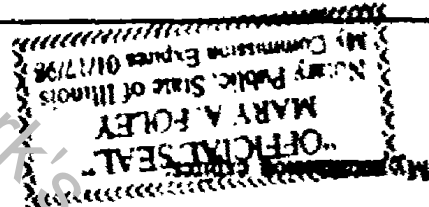 "OFFICIAL SEAL"
MARY A. FOLEY
Notary Public, State of Illinois
My Commission Expires 01/17/98
My
rk's